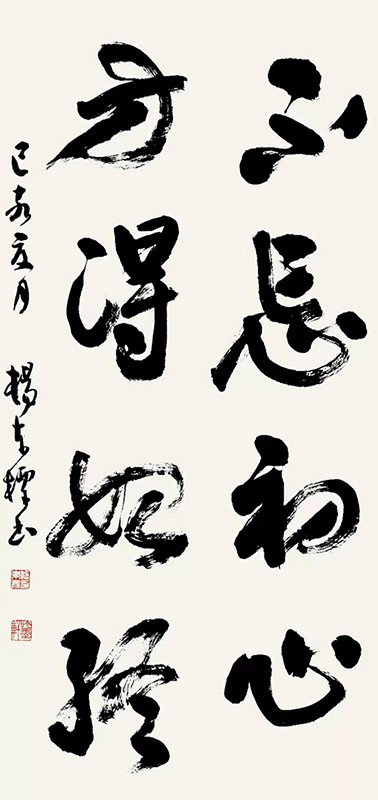 不忘初心
方得始終
己亥夏月 楊